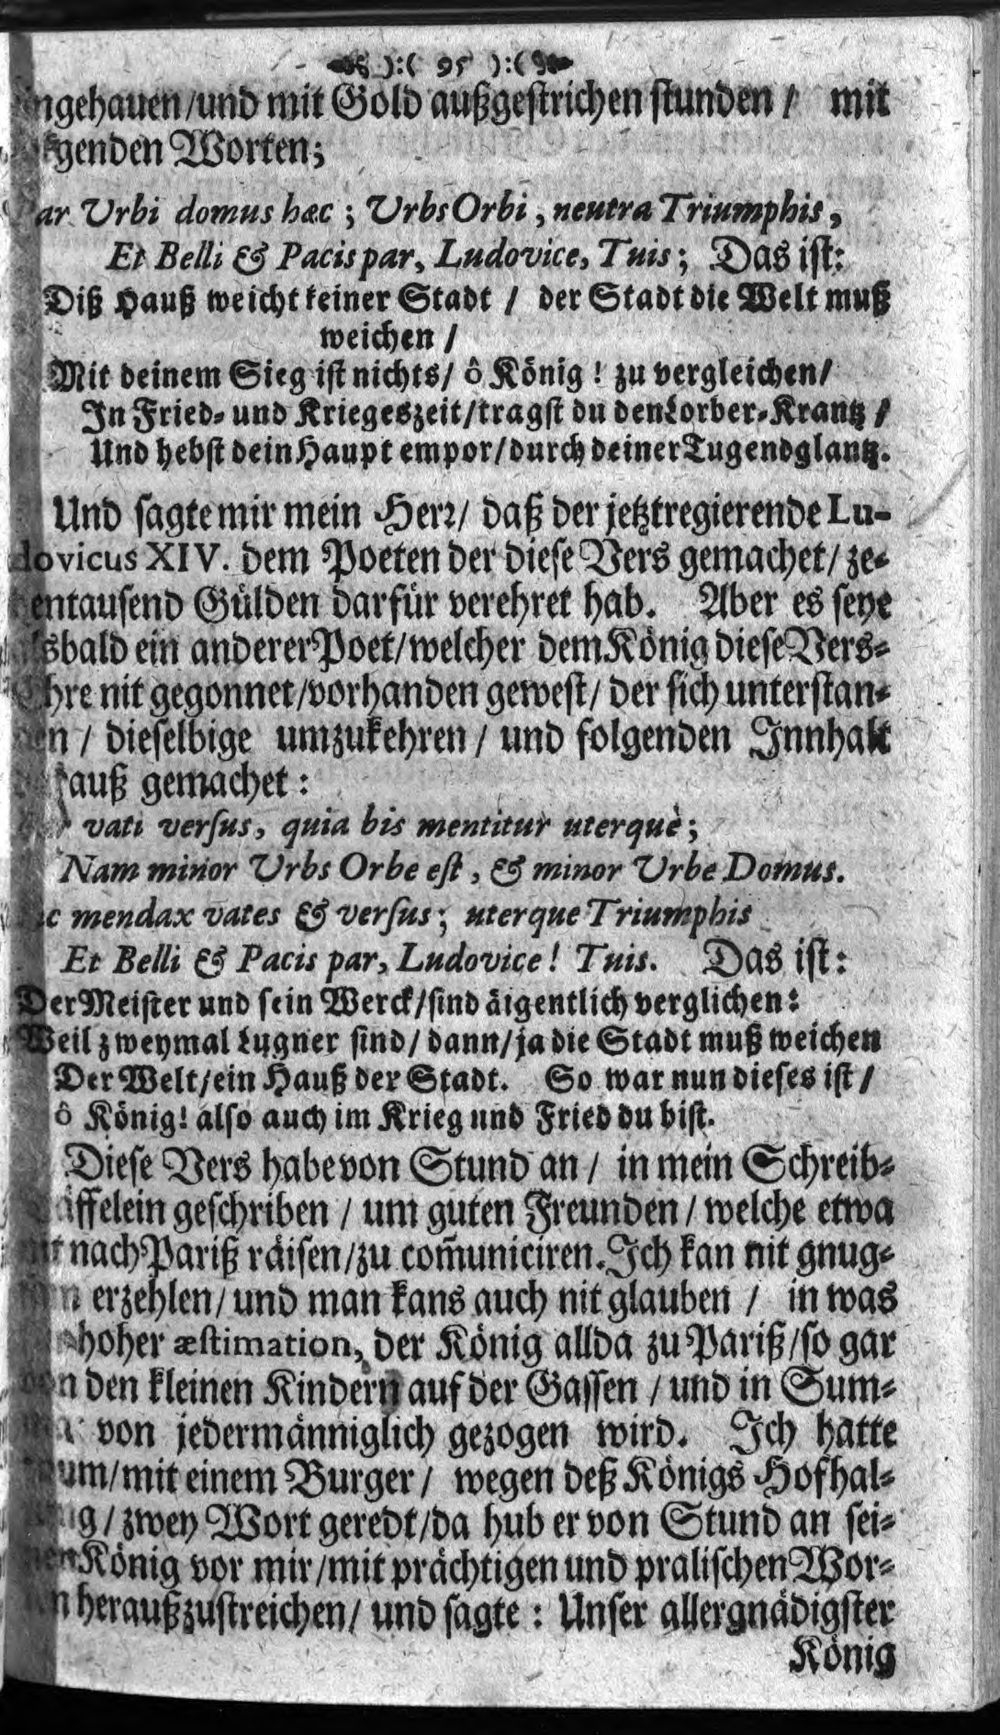 ):( 95 ):(
ngehauen/und mit Gold außgestrichen stunden / mit
genden Worten;
ar Urbi domus hæc ; Urbs Orbi, neutra Triumphis,
Et Belli & Pacis par, Ludovice, Tuis; Das ist:
Diß Hauß weicht keiner Stadt / der Stadt die Welt muß
weichen /
Mit deinem Sieg ist nichts/ ô König! zu vergleichen/
In Fried- und Kriegeszeit/tragst du den Lorber-Krantz /
Und hebst dein Haupt empor/durch deiner Tugendglantz.
Und sagte mir mein Herr/ daß der jetztregierende Lu-
dovicus XIV. dem Poeten der diese Vers gemachet/ ze-
entausend Gülden darfür verehret hab. Aber es seye
lsbald ein anderer Poet/welcher dem König diese Vers-
Ehre nit gegonnet/vorhanden gewest/ der sich unterstan-
en / dieselbige umzukehren / und folgenden Innhalt
auß gemachet:
vati versus, quia bis mentitur uterquè;
Nam minor Urbs Orbe est, & minor Urbe Domus.
c mendax vates & versus; uterque Triumphis
Et Belli & Pacis par, Ludovice! Tuis. Das ist:
Der Meister und sein Werck/sind äigentlich verglichen:
Weil zweymal Lugner sind/ dann/ja die Stadt muß weichen
Der Welt/ein Hauß der Stadt. So war nun dieses ist /
ô König! also auch im Krieg und Fried du bist.
Diese Vers habe von Stund an / in mein Schreib-
äffelein geschriben / um guten Freunden / welche etwa
nach Pariß räisen/zu com̃uniciren. Ich kan nit gnug-
erzehlen/ und man kans auch nit glauben / in was
hoher æstimation, der König allda zu Pariß/so gar
on den kleinen Kindern auf der Gassen / und in Sum-
von jedermänniglich gezogen wird. Ich hatte
um/mit einem Burger / wegen deß Königs Hofhal-
g / zwey Wort geredt/da hub er von Stund an sei-
nen König vor mir/mit prächtigen und pralischen Wor-
n heraußzustreichen/ und sagte : Unser allergnädigster
König